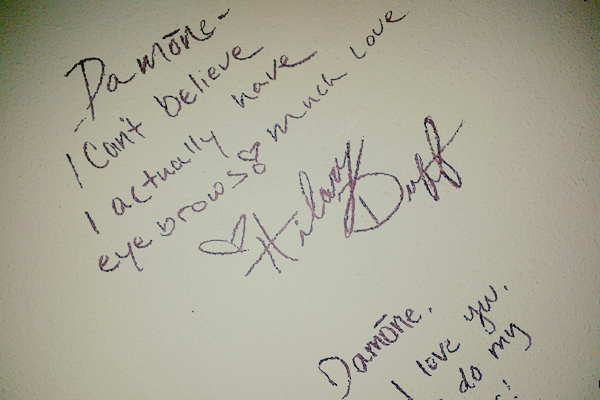 Damōne-
I Can't believe
I actually have
eyebrows! much love
♡ Hilary Duff
Damōne.
I love yu.
do my